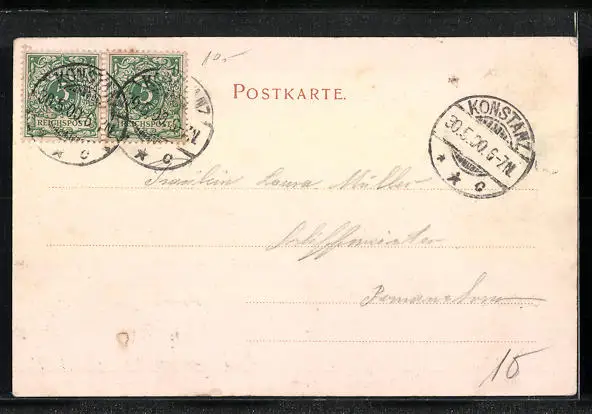 5 5
REICHSPOST REICHSPOST
KONSTANZ
KONSTANZ
10.-
POSTKARTE.
KONSTANZ
30.5.00.6-7N.
* * c
Fräulein Laura Müller
Schiffmeister
Romanshorn
10